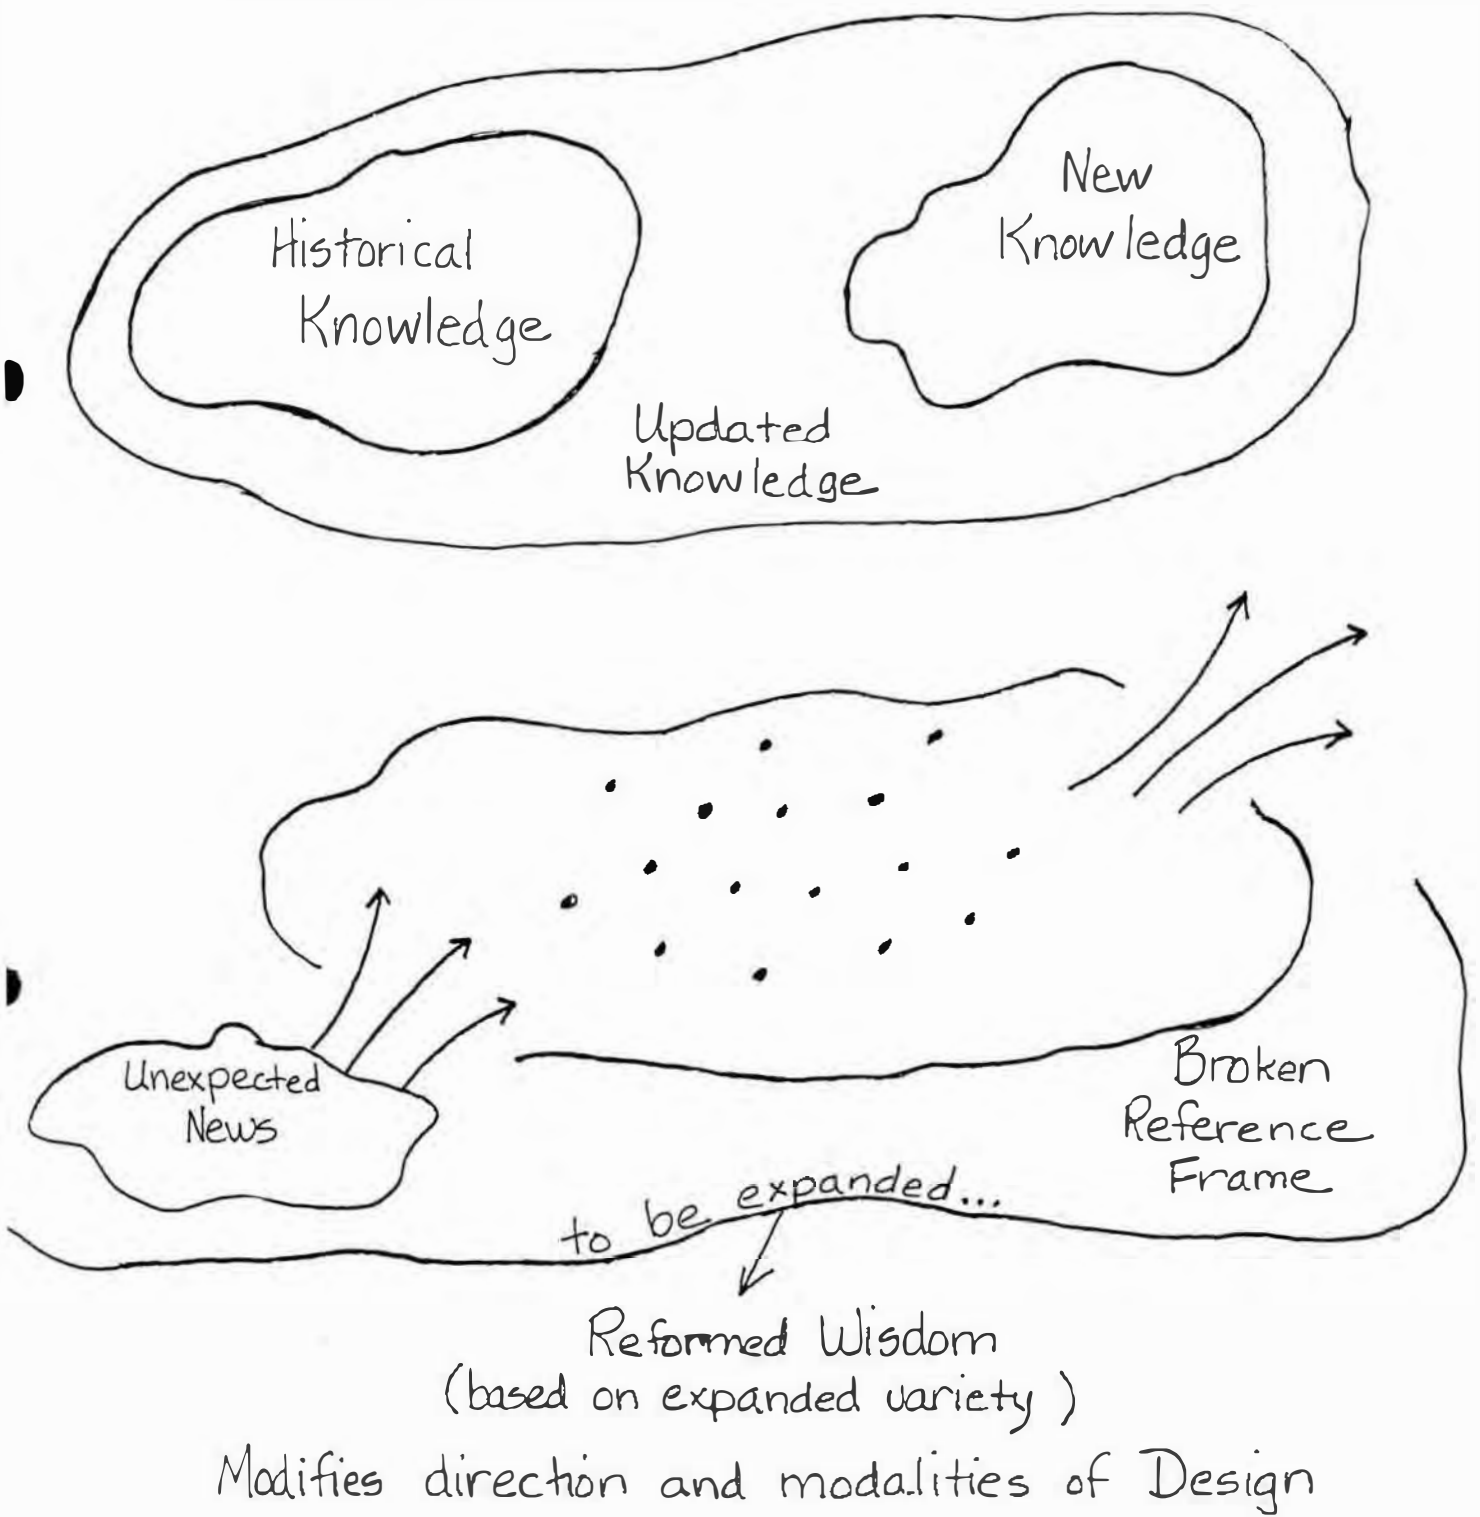 Historical
Knowledge
New
Knowledge
Updated
Knowledge
Unexpected
News
Broken
Reference
Frame
to be expanded...
Reformed Wisdom
(based on expanded variety)
Modifies direction and modalities of Design